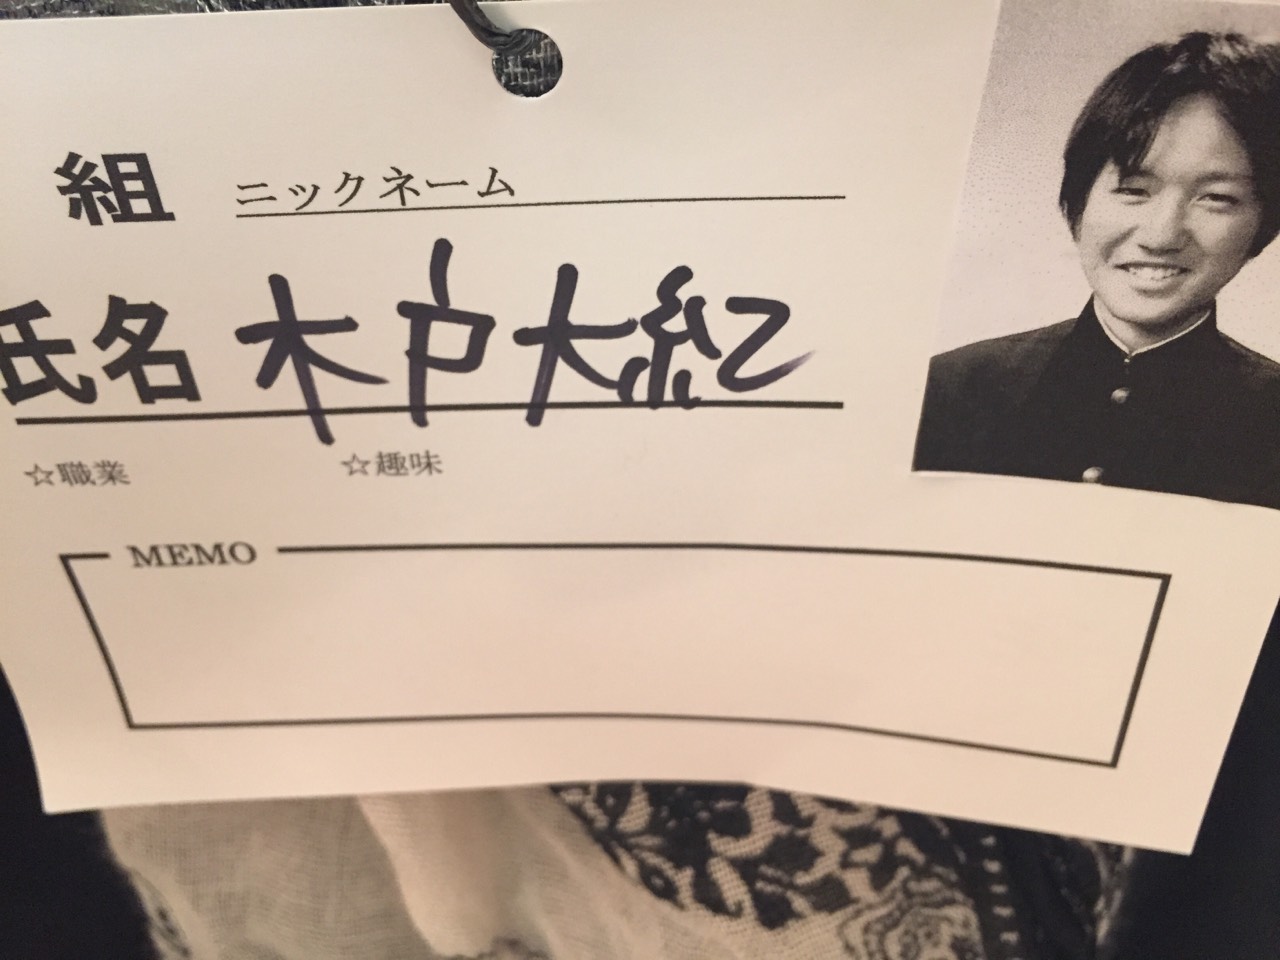 組 ニックネーム
氏名 木戸大紀
☆職業 ☆趣味
MEMO